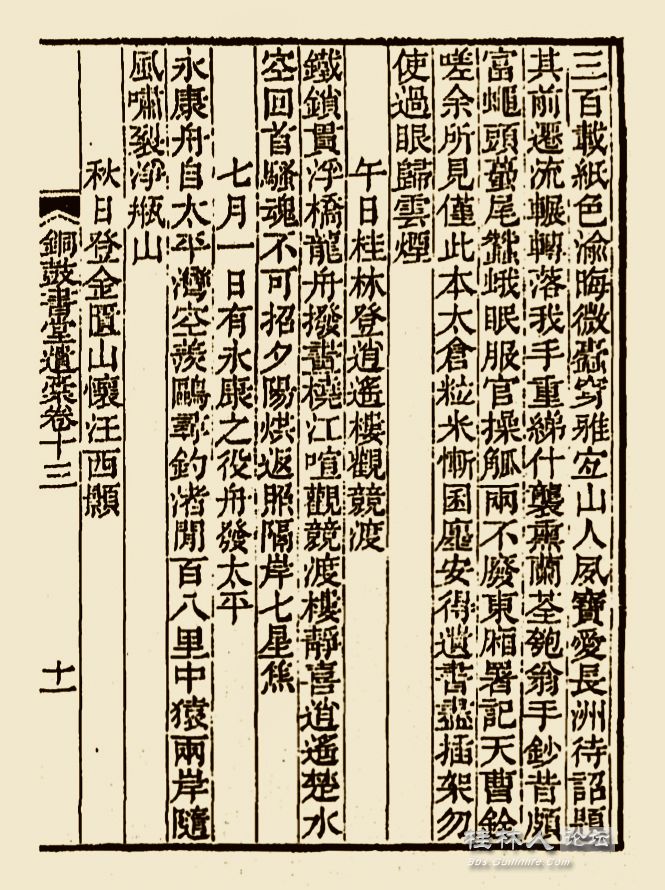 三百載紙色渝晦微蠹穿雅宜山人夙寶愛長洲待詔題
其前遷流輾轉落我手重綈什襲熏蘭荃匏翁手鈔昔頗
富蠅頭蠆尾蠶蛾眠服官操觚兩不廢東廂署記天曹銓
嗟余所見僅此本太倉粒米慚囷廛安得遺書盡插架勿
使過眼歸雲煙
午日桂林登逍遙樓觀競渡
鐵鎖貫浮橋龍舟撥畫橈江喧觀競渡樓靜喜逍遙楚水
空回首騷魂不可招夕陽烘返照隔岸七星焦
七月一日有永康之役舟發太平
永康舟自太平灣空羨鷗尋釣渚閒百八里中猿兩岸隨
風嘯裂淨瓶山
秋日登金匱山懷汪西顥
銅鼓書堂遺稾卷十三
十一
桂林人论坛
Bbs.Guilinlife.Com